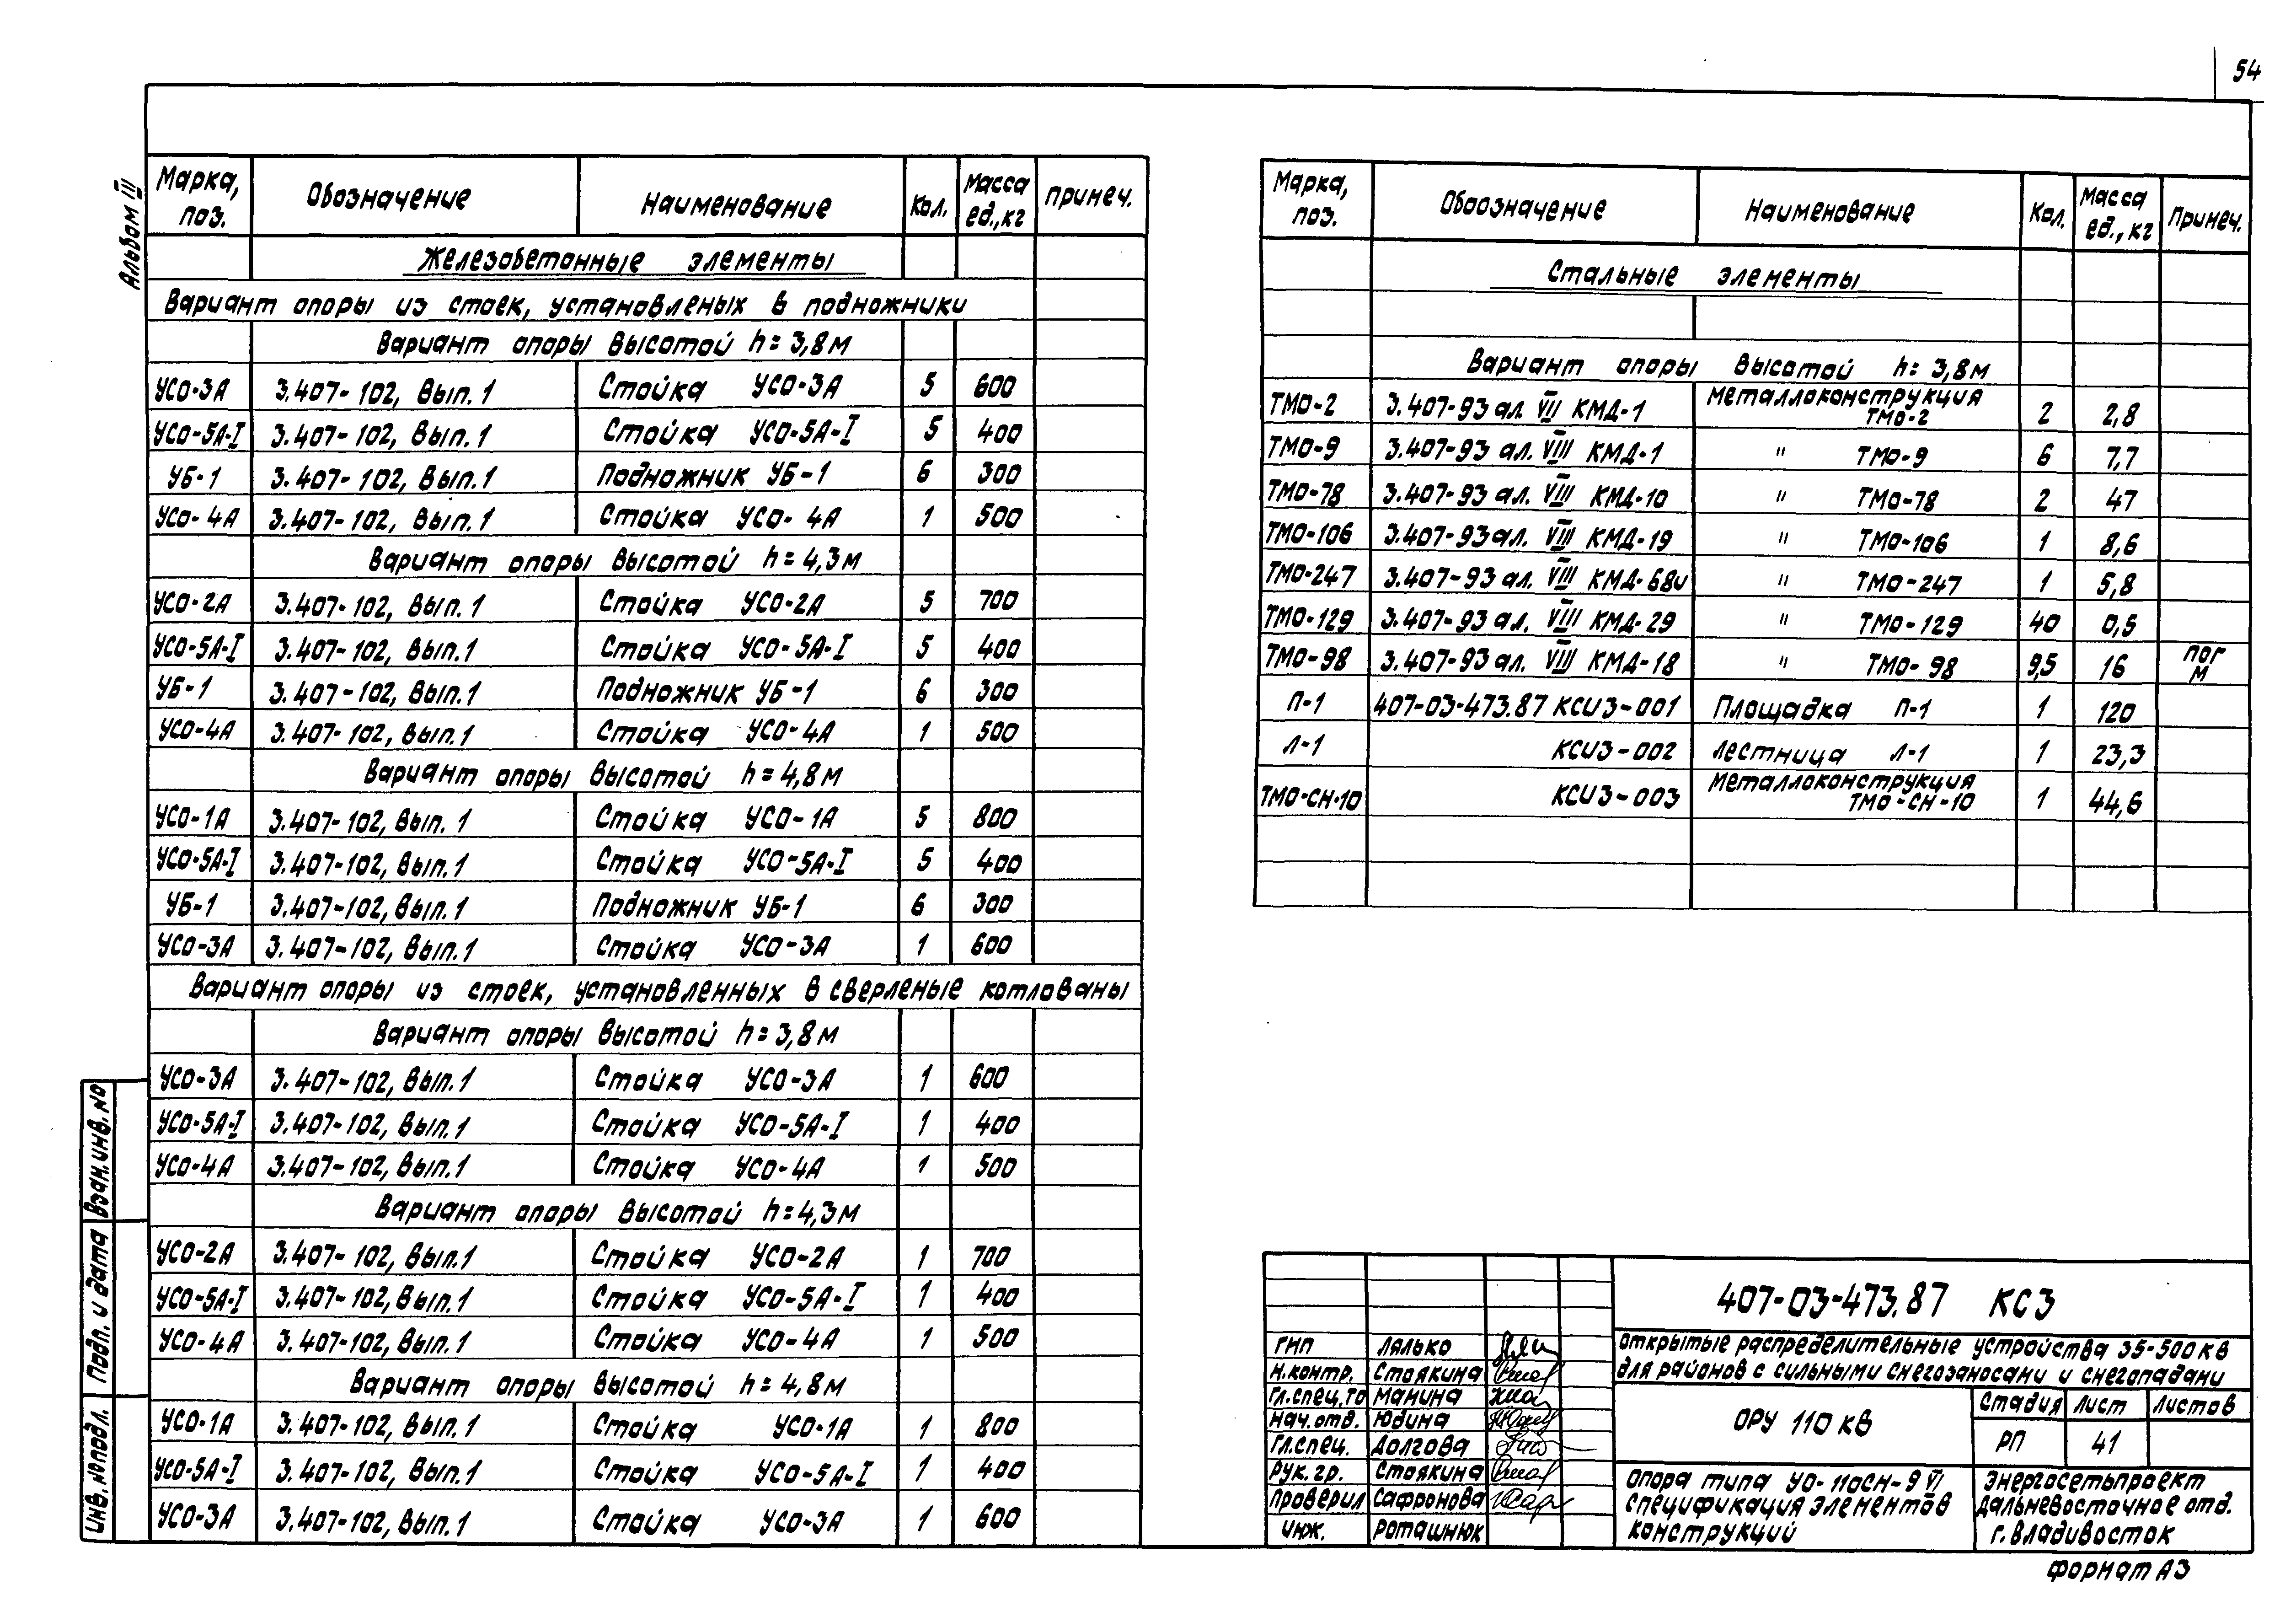 54
Альбом III
Марка, поз. Обозначение Наименование Кол. Масса ед., кг Примеч.
Железобетонные элементы
Вариант опоры из стоек, установленых в подножники
Вариант опоры высотой h=3,8м
УСО-3А 3.407-102, Вып.1 Стойка УСО-3А 5 600
УСО-5А-I 3.407-102, Вып.1 Стойка УСО-5А-I 5 400
УБ-1 3.407-102, Вып.1 Подножник УБ-1 6 300
УСО-4А 3.407-102, Вып.1 Стойка УСО-4А 1 500
Вариант опоры высотой h=4,3м
УСО-2А 3.407-102, Вып.1 Стойка УСО-2А 5 700
УСО-5А-I 3.407-102, Вып.1 Стойка УСО-5А-I 5 400
УБ-1 3.407-102, Вып.1 Подножник УБ-1 6 300
УСО-4А 3.407-102, Вып.1 Стойка УСО-4А 1 500
Вариант опоры высотой h=4,8м
УСО-1А 3.407-102, Вып.1 Стойка УСО-1А 5 800
УСО-5А-I 3.407-102, Вып.1 Стойка УСО-5А-I 5 400
УБ-1 3.407-102, Вып.1 Подножник УБ-1 6 300
УСО-3А 3.407-102, Вып.1 Стойка УСО-3А 1 600
Вариант опоры из стоек, установленных в сверленые котлованы
Вариант опоры высотой h=3,8м
УСО-3А 3.407-102, Вып.1 Стойка УСО-3А 1 600
УСО-5А-I 3.407-102, Вып.1 Стойка УСО-5А-I 1 400
УСО-4А 3.407-102, Вып.1 Стойка УСО-4А 1 500
Вариант опоры высотой h=4,3м
УСО-2А 3.407-102, Вып.1 Стойка УСО-2А 1 700
УСО-5А-I 3.407-102, Вып.1 Стойка УСО-5А-I 1 400
УСО-4А 3.407-102, Вып.1 Стойка УСО-4А 1 500
Вариант опоры высотой h=4,8м
УСО-1А 3.407-102, Вып.1 Стойка УСО-1А 1 800
УСО-5А-I 3.407-102, Вып.1 Стойка УСО-5А-I 1 400
УСО-3А 3.407-102, Вып.1 Стойка УСО-3А 1 600
Марка, поз. Обоозначение Наименование Кол. Масса ед., кг Примеч.
Стальные элементы
Вариант опоры высотой h=3,8м
ТМО-2 3.407-93 ал. VII КМД-1 Металлоконструкция ТМО-2 2 2,8
ТМО-9 3.407-93 ал. VIII КМД-1 " ТМО-9 6 7,7
ТМО-78 3.407-93 ал. VIII КМД-10 " ТМО-78 2 47
ТМО-106 3.407-93 ал. VIII КМД-19 " ТМО-106 1 8,6
ТМО-247 3.407-93 ал. VIII КМД-68и " ТМО-247 1 5,8
ТМО-129 3.407-93 ал. VIII КМД-29 " ТМО-129 40 0,5
ТМО-98 3.407-93 ал. VIII КМД-18 " ТМО-98 9,5 16 пог м
П-1 407-03-473.87 КСИЗ-001 Площадка П-1 1 120
Л-1 КСИЗ-002 Лестница Л-1 1 23,3
ТМО-СН-10 КСИЗ-003 Металлоконструкция ТМО-СН-10 1 44,6
Взам.инв.№
Подп. и дата
Инв.№подл.
407-03-473.87 КС3
ГИП Лялько
Н.контр. Стоякина
Гл.спец.ТО Манина
Нач.отд. Юдина
Гл.спец. Долгова
Рук.гр. Стоякина
Проверил Сафронова
Инж. Роташнюк
Открытые распределительные устройства 35-500кВ
для районов с сильными снегозаносами и снегопадами
ОРУ 110 кВ
Стадия Лист Листов
РП 41
Опора типа УО-110СН-9 VI
Спецификация элементов
конструкций
Энергосетьпроект
Дальневосточное отд.
г. Владивосток
Формат А3